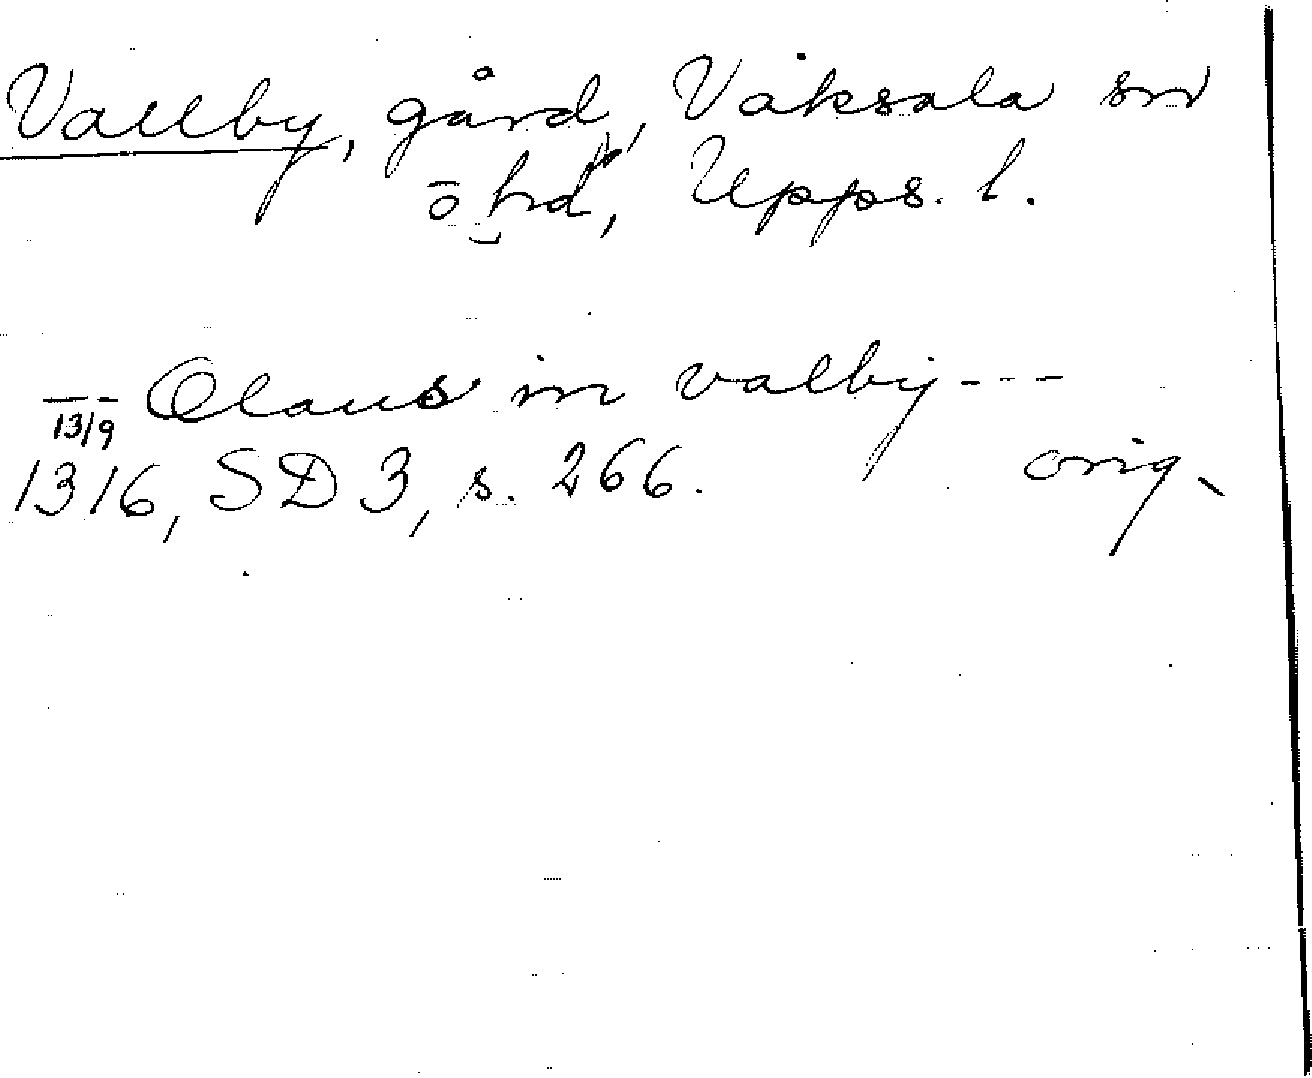 Vallby, gård, Vaksala sn
o hd, Upps. l.
-- Olaus in valby ---
13/9
1316, SD 3, s. 266. orig.